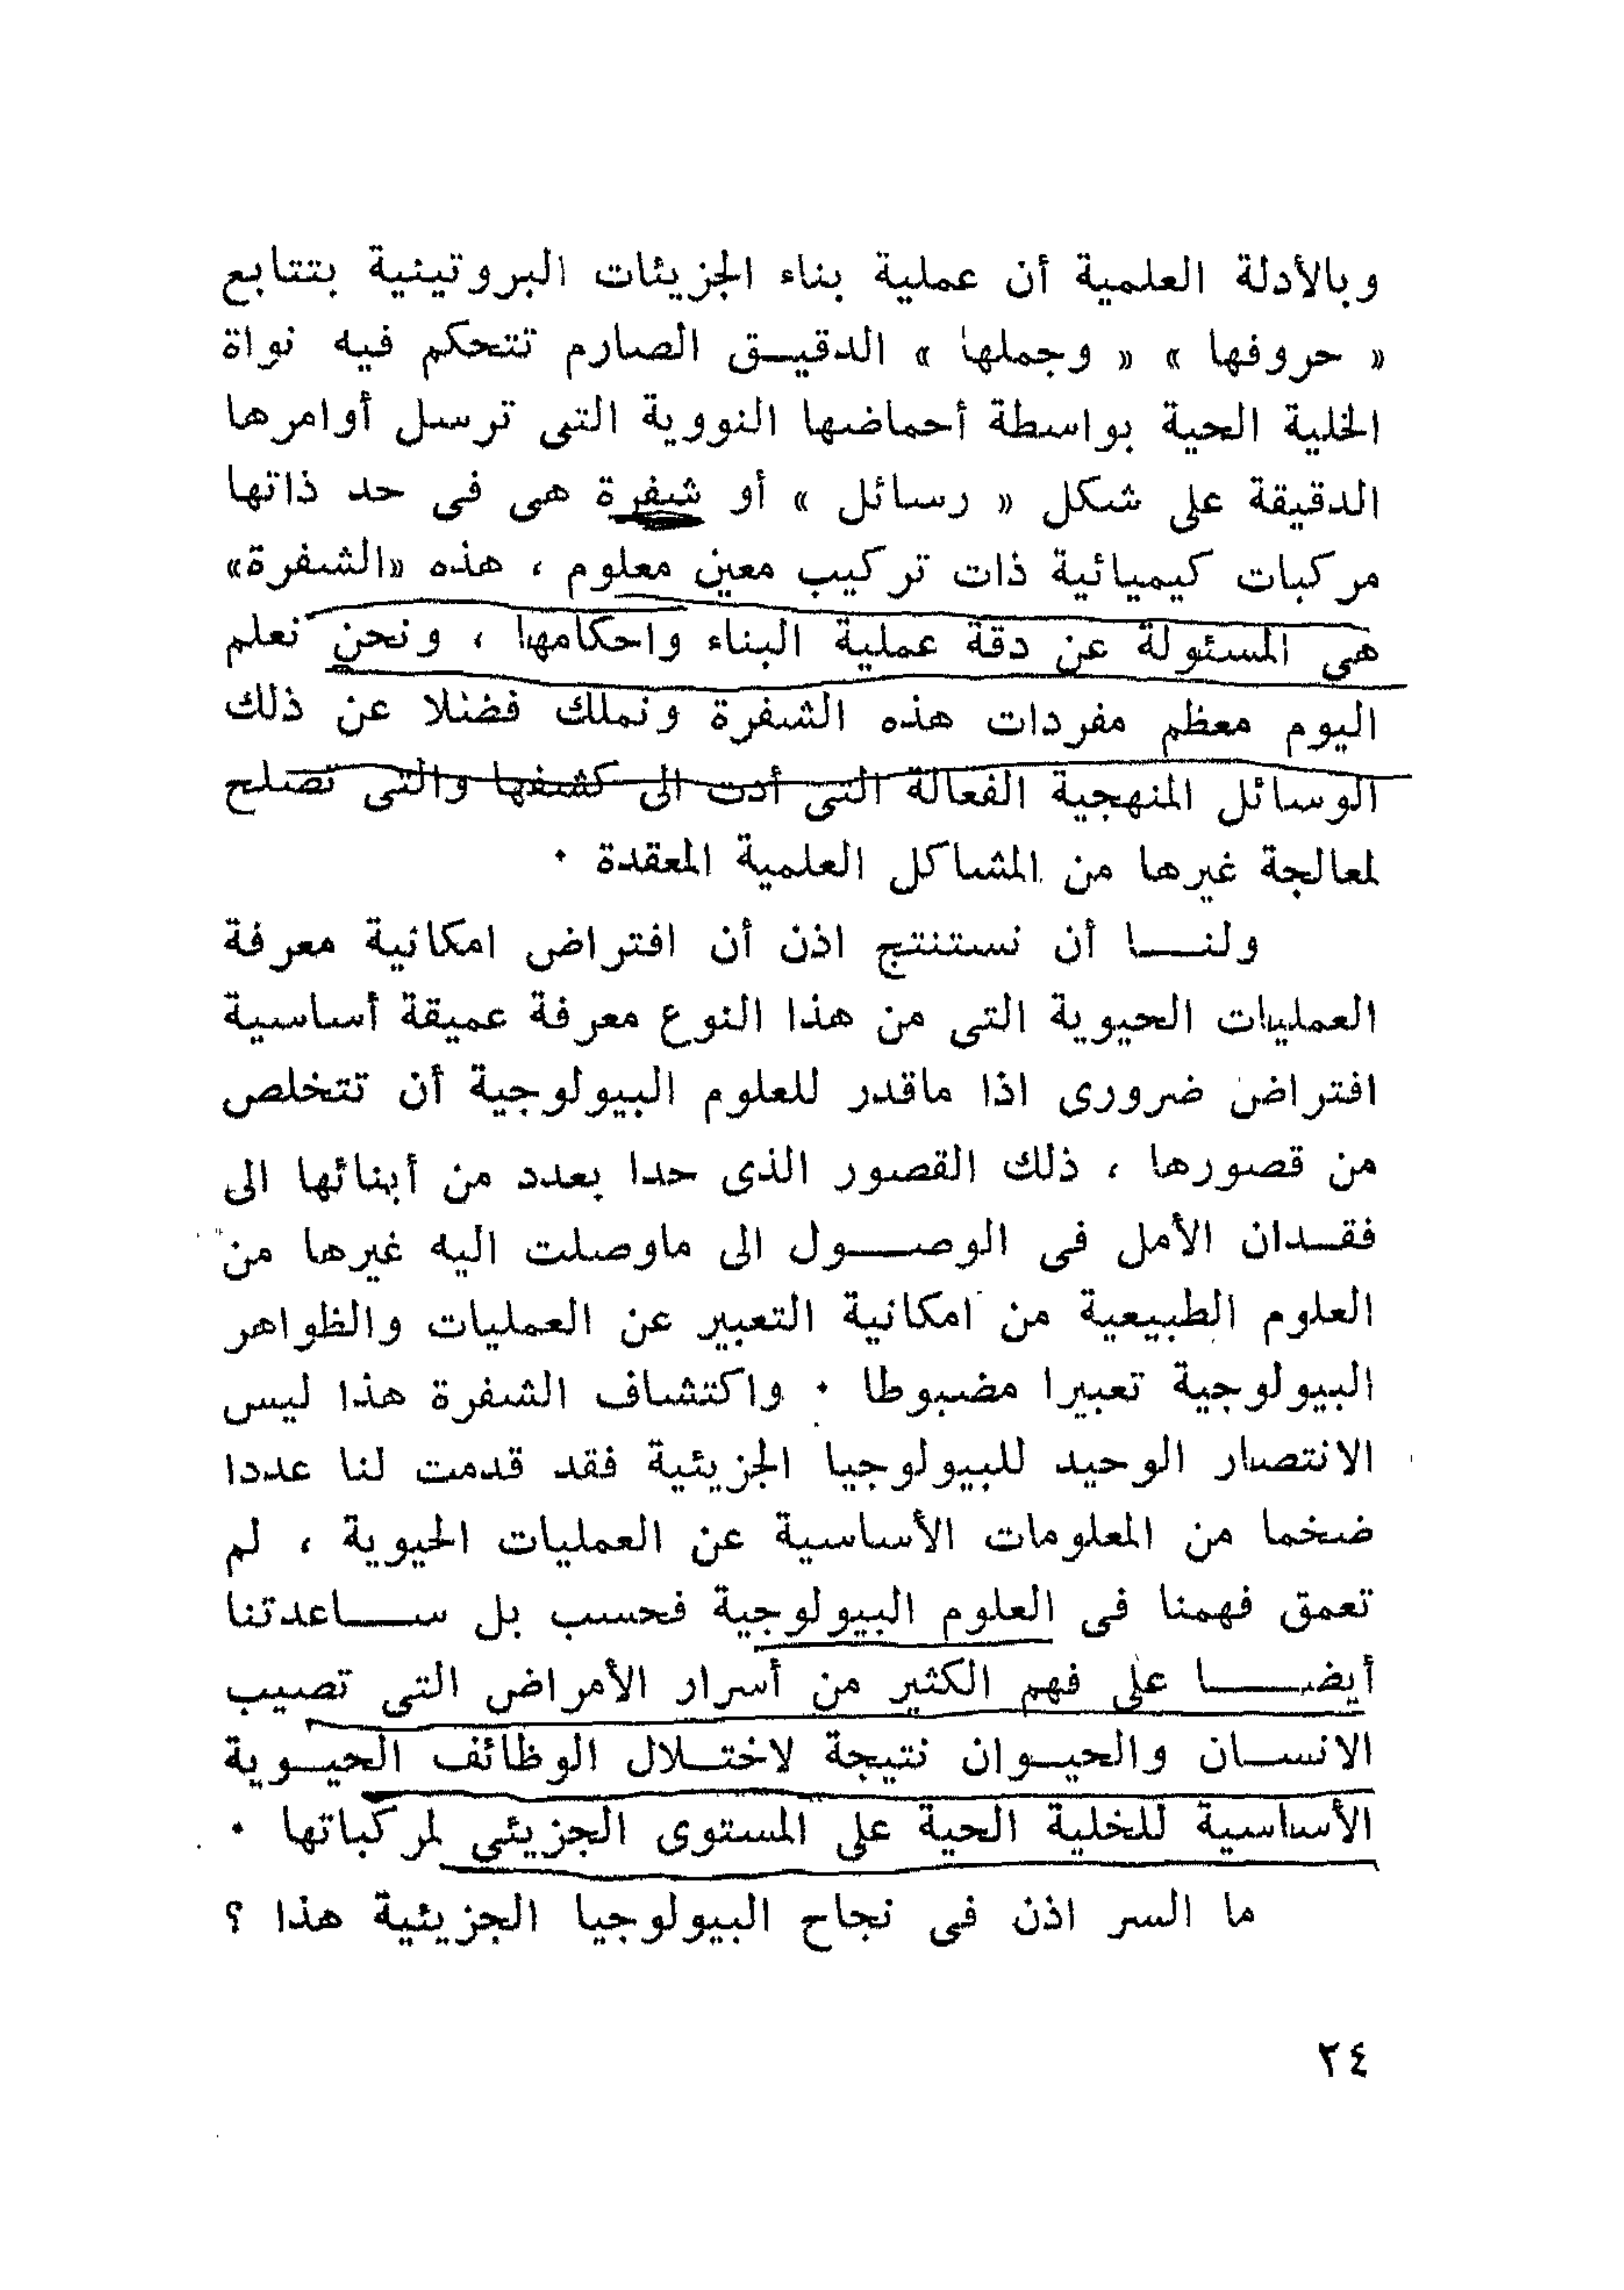 وبالأدلة العلمية أن عملية بناء الجزيئات البروتينية بتتابع
« حروفها » « وجملها » الدقيـق الصارم تتحكم فيه نواة
الخلية الحية بواسطة أحماضها النووية التى ترسل أوامرها
الدقيقة على شكل « رسائل » أو شفرة هى فى حد ذاتها
مركبات كيميائية ذات تركيب معين معلوم ، هذه «الشفرة»
هى المسئولة عن دقة عملية البناء واحكامها ، ونحن نعلم
اليوم معظم مفردات هذه الشفرة ونملك فضلا عن ذلك
الوسائل المنهجية الفعالة التى أدت الى كشفها والتى تصلح
لمعالجة غيرها من المشاكل العلمية المعقدة ٠
ولنـــا أن نستنتج اذن أن افتراض امكانية معرفة
العمليات الحيوية التى من هذا النوع معرفة عميقة أساسية
افتراض ضرورى اذا ماقدر للعلوم البيولوجية أن تتخلص
من قصورها ، ذلك القصور الذى حدا بعدد من أبنائها الى
فقـدان الأمل فى الوصـــول الى ماوصلت اليه غيرها من
العلوم الطبيعية من امكانية التعبير عن العمليات والظواهر
البيولوجية تعبيرا مضبوطا ٠ واكتشاف الشفرة هذا ليس
الانتصار الوحيد للبيولوجيا الجزيئية فقد قدمت لنا عددا
ضخما من المعلومات الأساسية عن العمليات الحيوية ، لم
تعمق فهمنا فى العلوم البيولوجية فحسب بل ســـاعدتنا
أيضـــا على فهم الكثير من أسرار الأمراض التى تصيب
الانسـان والحيـوان نتيجة لاختـلال الوظائف الحيـوية
الأساسية للخلية الحية على المستوى الجزيئى لمركباتها ٠
ما السر اذن فى نجاح البيولوجيا الجزيئية هذا ؟
٢٤